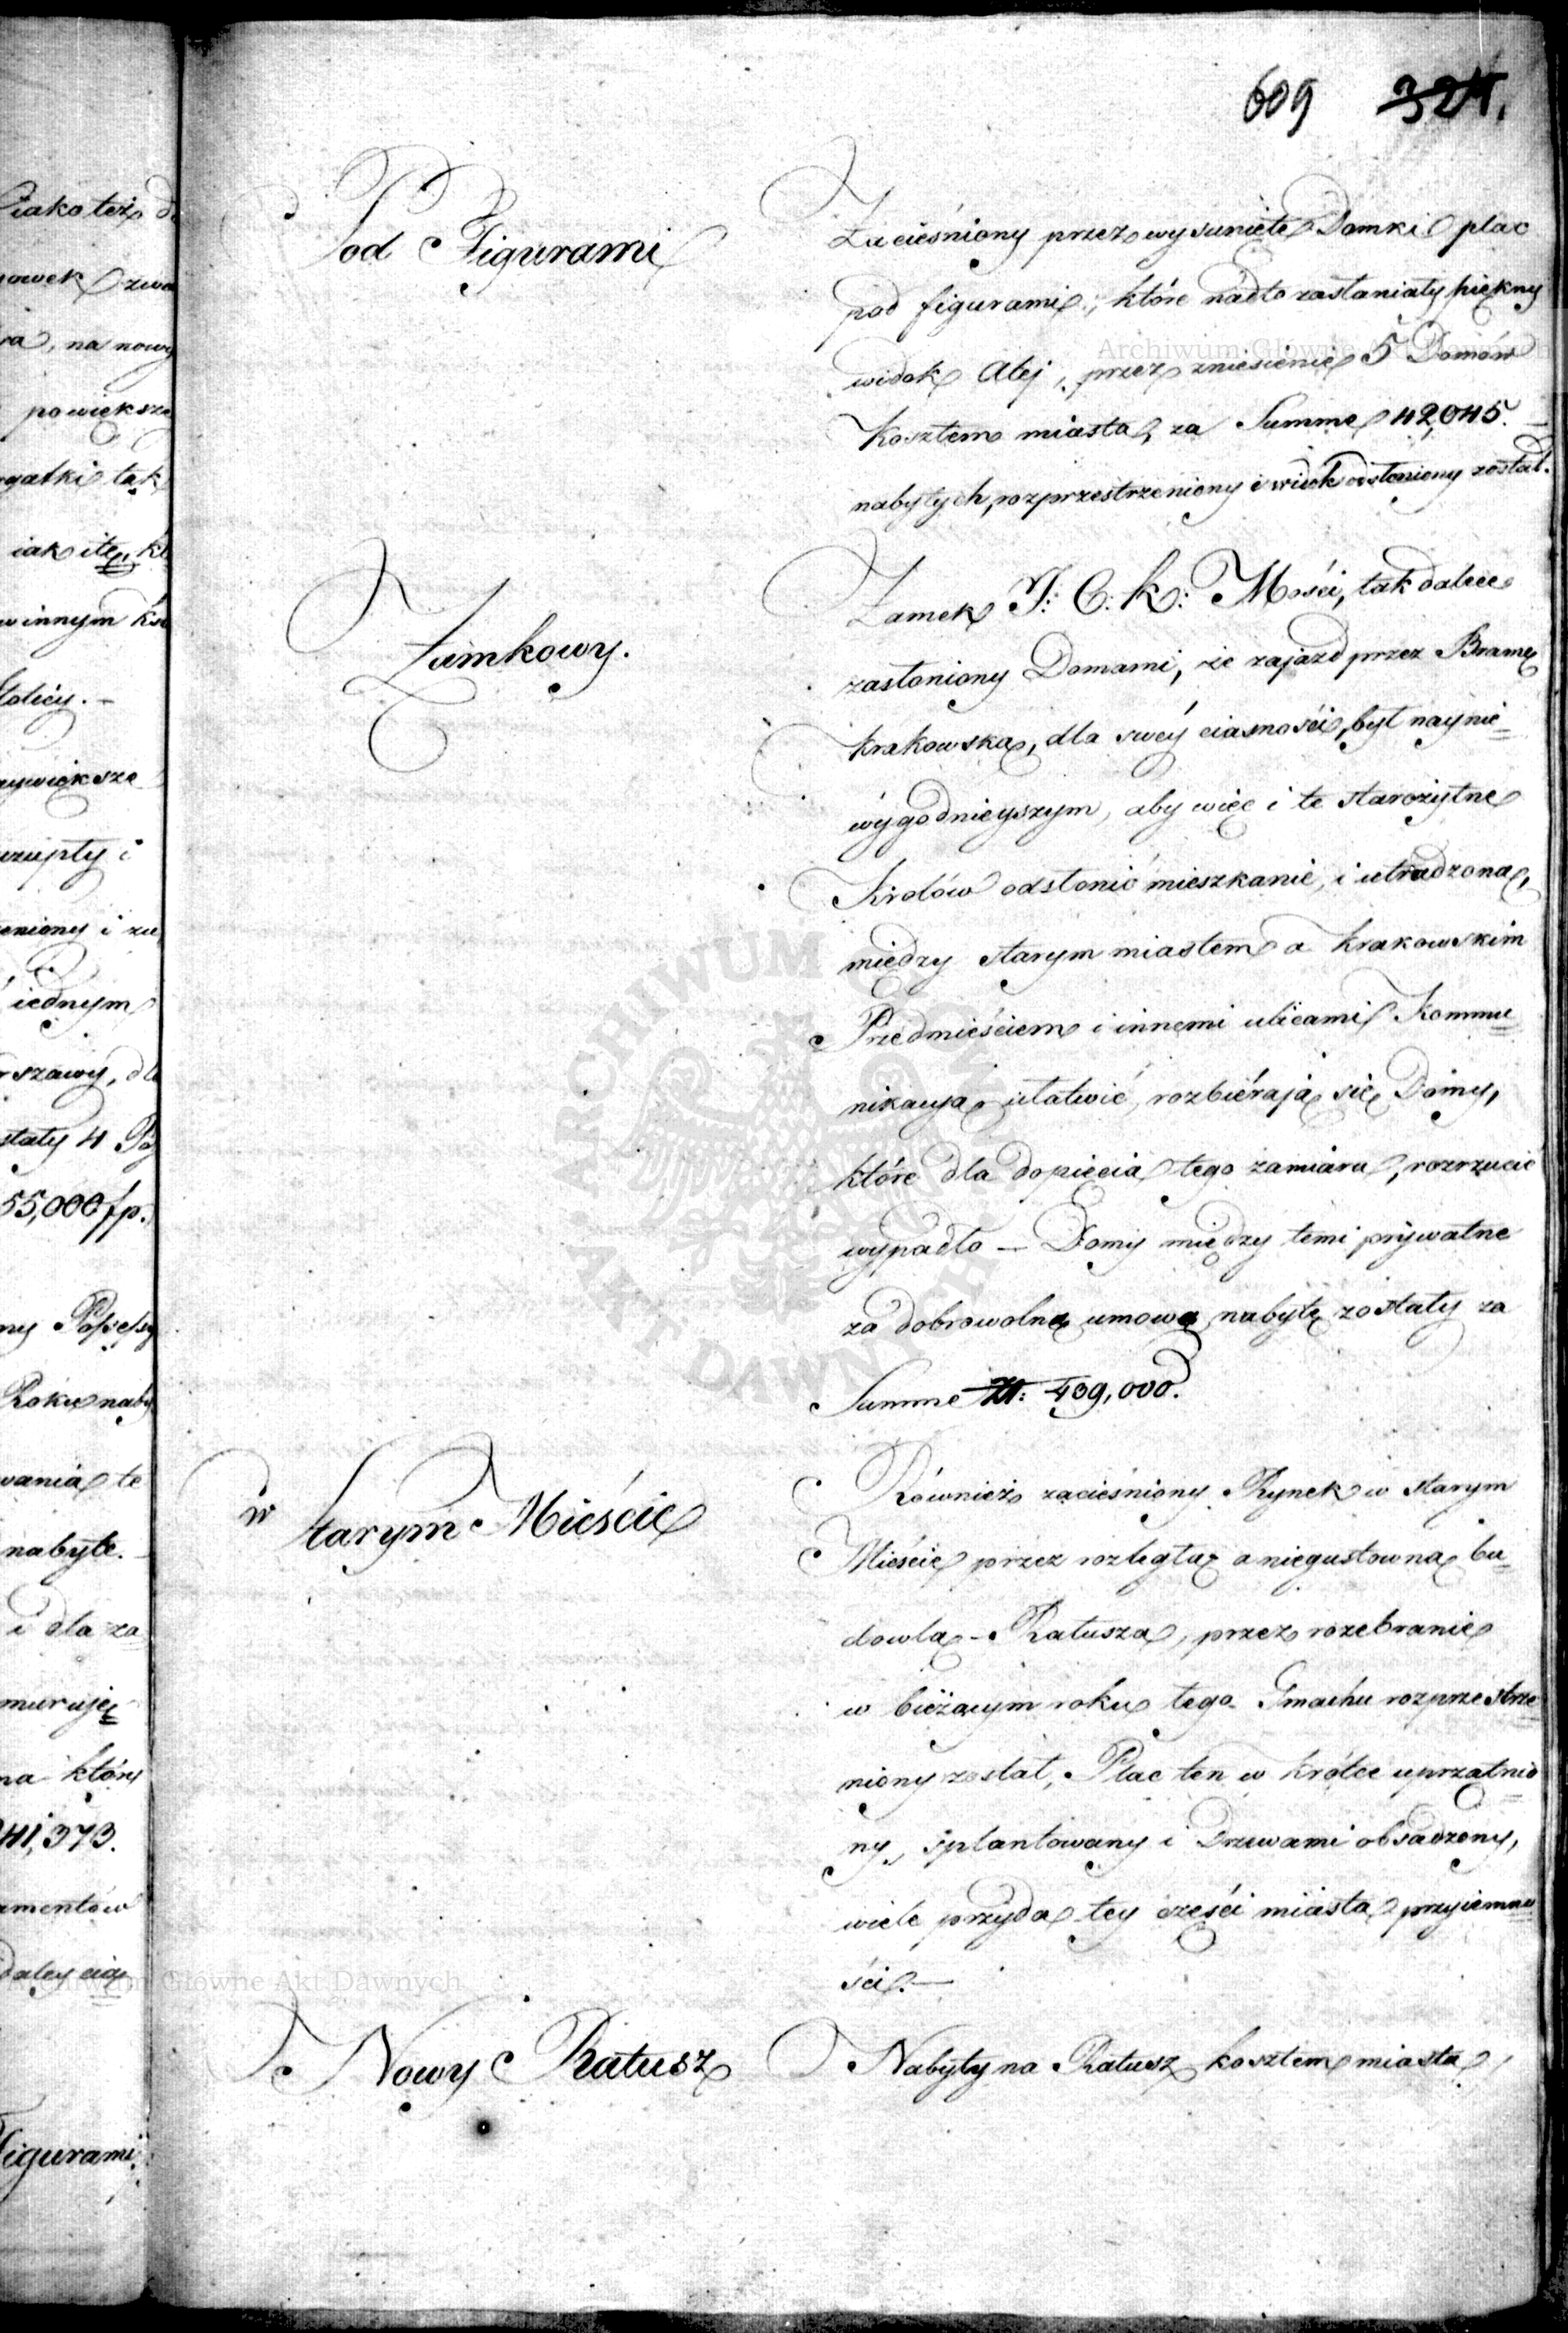 609 324.
Pod Figurami
Zacieśniony przez wysuniete Domki plac
pod figurami, które nadto zasłaniały piękny
widok Alej, przez zniesienie 5 Domów
Kosztem miasta, za Summę 42,045.
nabytych, rozprzestrzeniony i widok odsłoniony został.
Zamkowy.
Zamek J: C: K: Mości, tak dalece
zasłoniony Domami, że zajazd przez Bramę
krakowską, dla swéy ciasności, był naynie=
wygodnieyszym, aby więc i te starożytne
Królów odsłonić mieszkanie, i utrudzoną,
między starym miastem a krakowskim
Przedmieściem i innemi ulicami Kommu=
nikacyą ułatwić, rozbiérają się Domy,
które dla dopięcia tego zamiaru, rozrzucić
wypadło — Domy między temi prywatne
za dobrowolną umową nabyte zostały za
Summę Zł: 409,000.
w Starym Mieście
Również zacieśniony Rynek w starym
Mieście przez rozległą a niegustowną bu=
dowlą - Ratusza, przez rozebranie
w bieżącym roku tego Gmachu rozprzestrze=
niony został, Plac ten w krótce uprzątnio=
ny, splantowany i Drzewami obsadzony,
wiele przyda tey części miasta przyiemno=
ści. —
Nowy Ratusz
Nabyty na Ratusz kosztem miasta,
iako też
zwa
ra, na nowy
powiększe
tak
iak i tę, kt
w innym
naywiększe
zrupły i
iednym
rszawy, dla
stały 4 Po
55,000 fp.
ny Possessy
Roku naby
wania te
nabyte.
i dla za=
muruje=
na który
41,373.
amentów
daley cią=
Figurami.
Archiwum Główne Akt Dawnych
Archiwum Główne Akt Dawnych
ARCHIWUM GŁÓWNE AKT DAWNYCH